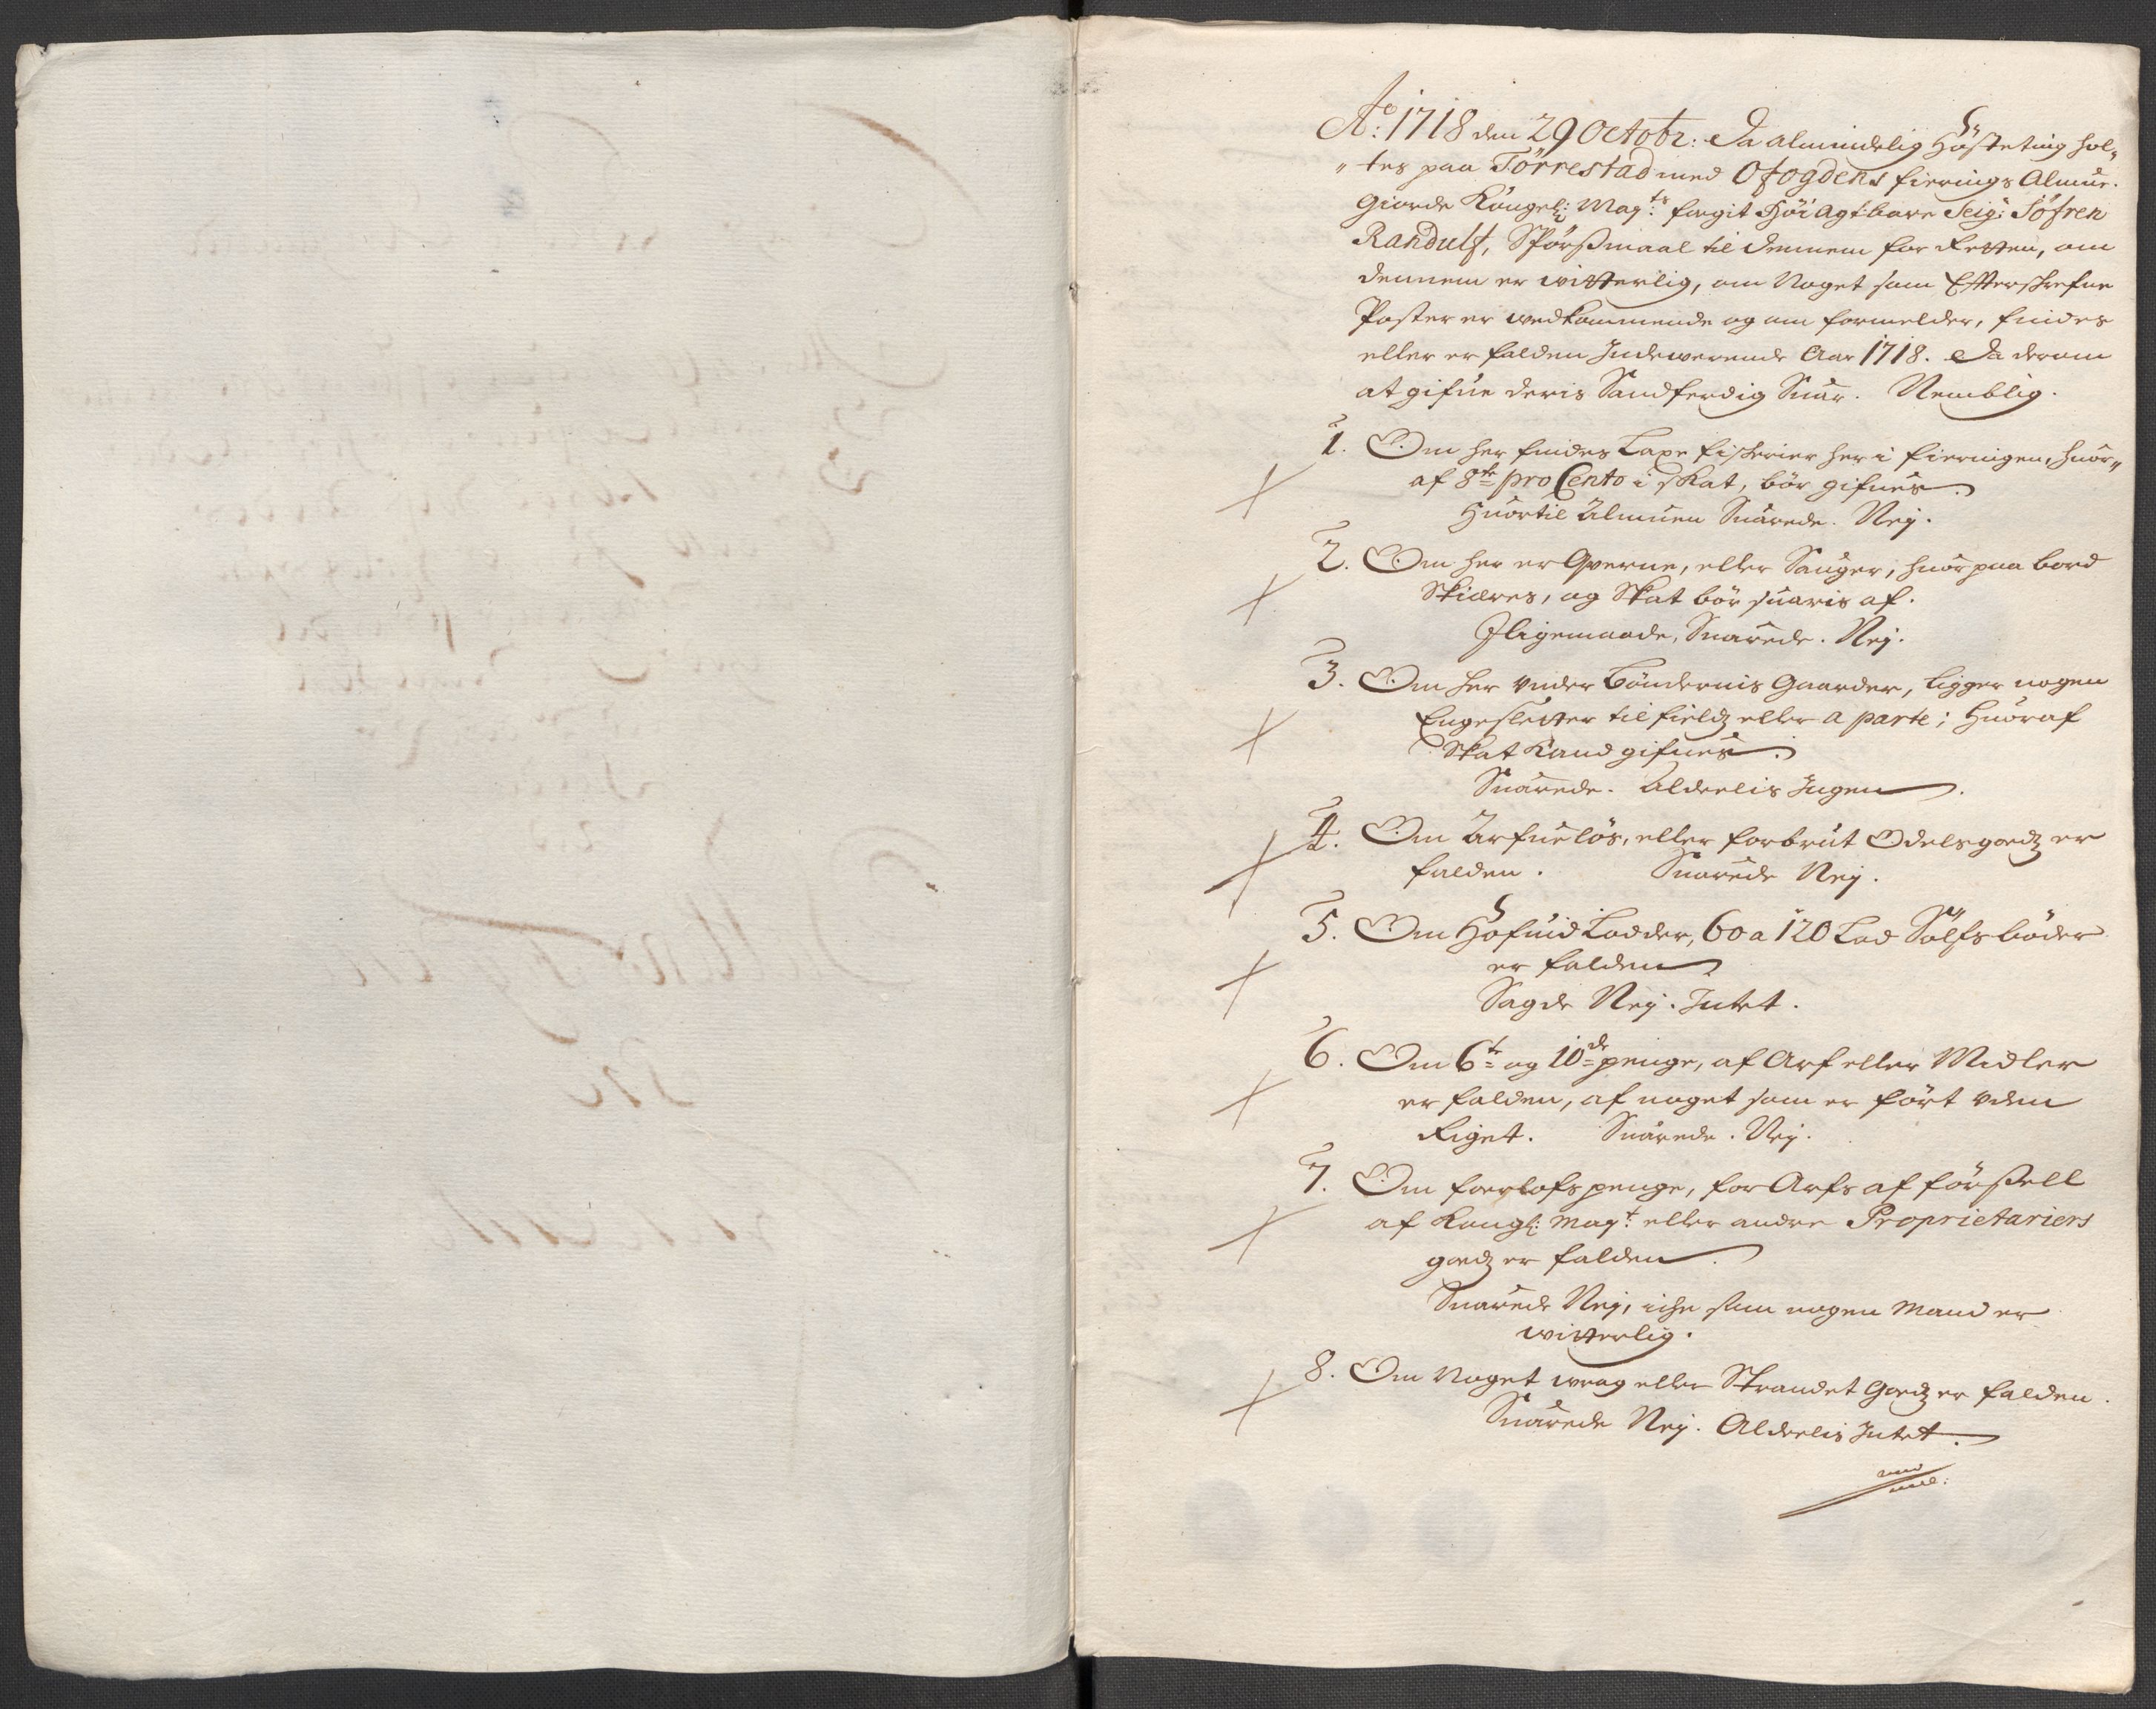 Ao: 1718 den 29 Octobr: Da almindelig Høsteting hol„
„tes paa Törrestad med Ofogdens fierings Almue.
Giorde Kongel: Mayts: fogit Høi Agtbare Seig: Söfren
Randulf, Spörßmaal til dennem for Retten, om
dennem er witterlig, om Noget som Efterskrefne
Poster er wedkommende og om formelder, findes
eller er falden Indewerende Aar 1718. Da derom
at gifue deris Sandferdig Suar. Nemblig.
1. Om her findes Laxe fiskerier her i fieringen, huor„
af 8te pro Cento i skat, bör gifues.
Huortil Almuen Suarede. Nej.
2. Om her er Qverne, eller Sauger, huor paa bord
Skiæres, og Skat bör suaris af.
Iligemaade, Suarede. Nej.
3. Om her under Böndernis Gaarder, ligger nogen
Engesletter til fieldz eller a parte; Huoraf
Skat kand gifues.
Suarede. Alderlis Ingen.
4. Om Arfuelös, eller forbrut Odelsgodz er
falden. Suarede Nej.
5. Om Hofuid Lodder, 60 a 120 Lod Sölfs böder
er falden
Sagde Nej. Intet.
6. Om 6te og 10de penge, af Arf eller Midler
er falden, af noget som er fört uden
Riget. Suarede. Nej.
7. Om forlofs penge, for Arfs afförßell
af Kongl: Mayt: eller andre Proprietariers
godz er falden.
Suarede Nej, iche som nogen Mand er
witterlig.
8. Om Noget wrag eller Strandet Godz er falden.
Suarede Nej. Alderlis Intet.